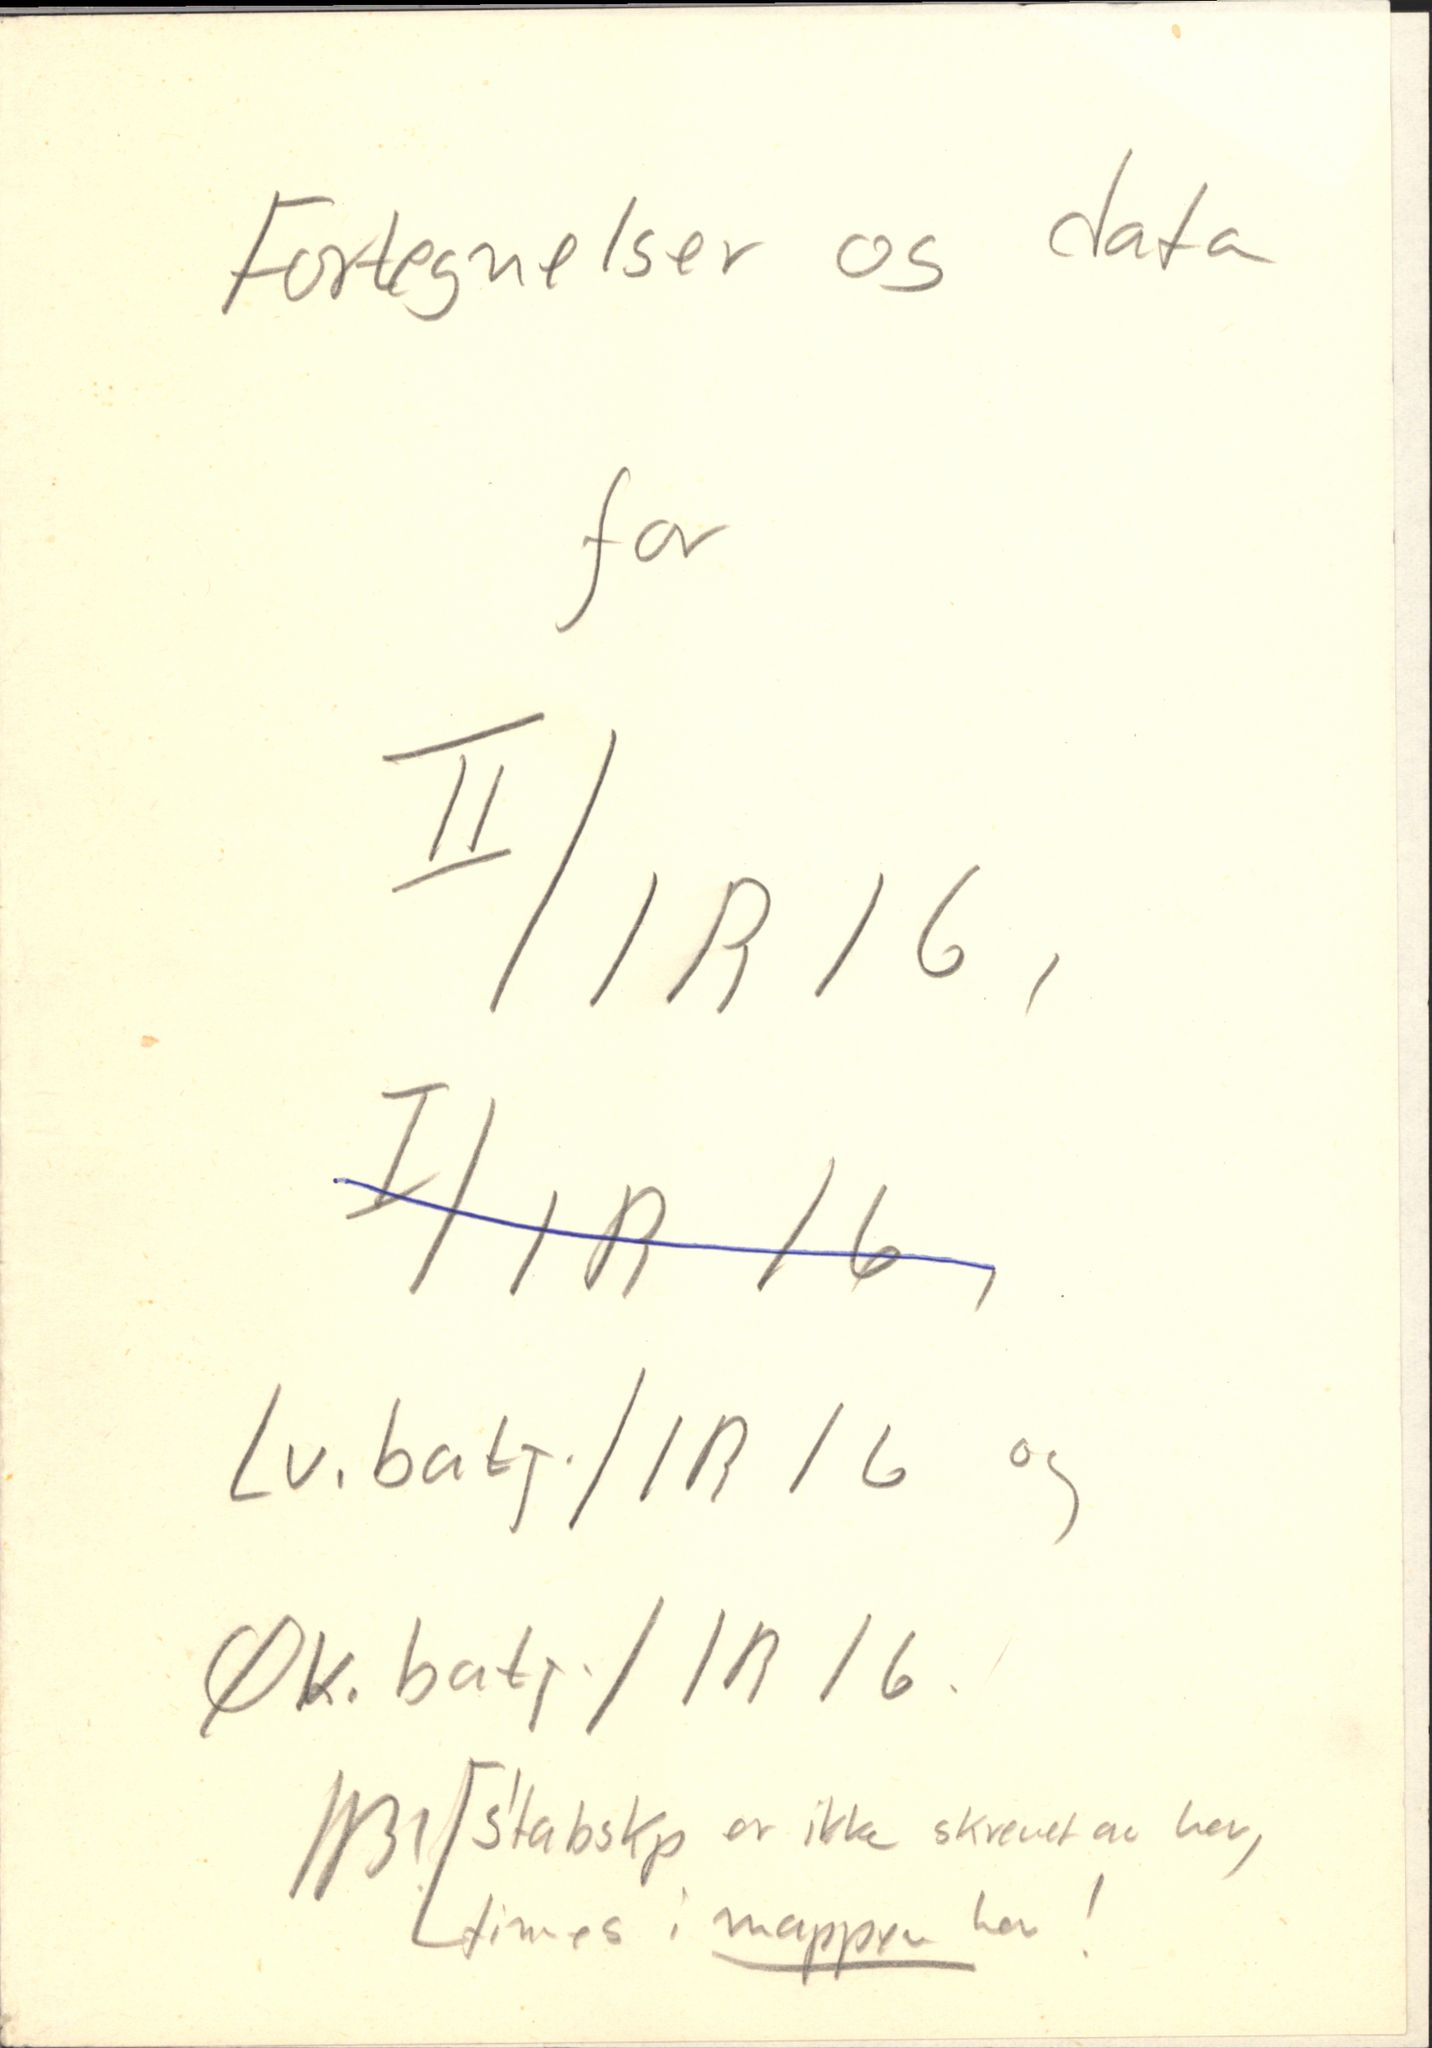 Fortegnelser og data
for
II/IR 16,
I/IR 16,
Lv.batj./IR 16 og
Øk.batj./IR 16.
NB! [Stabskp er ikke skrevet av her,
finnes i mappen her!